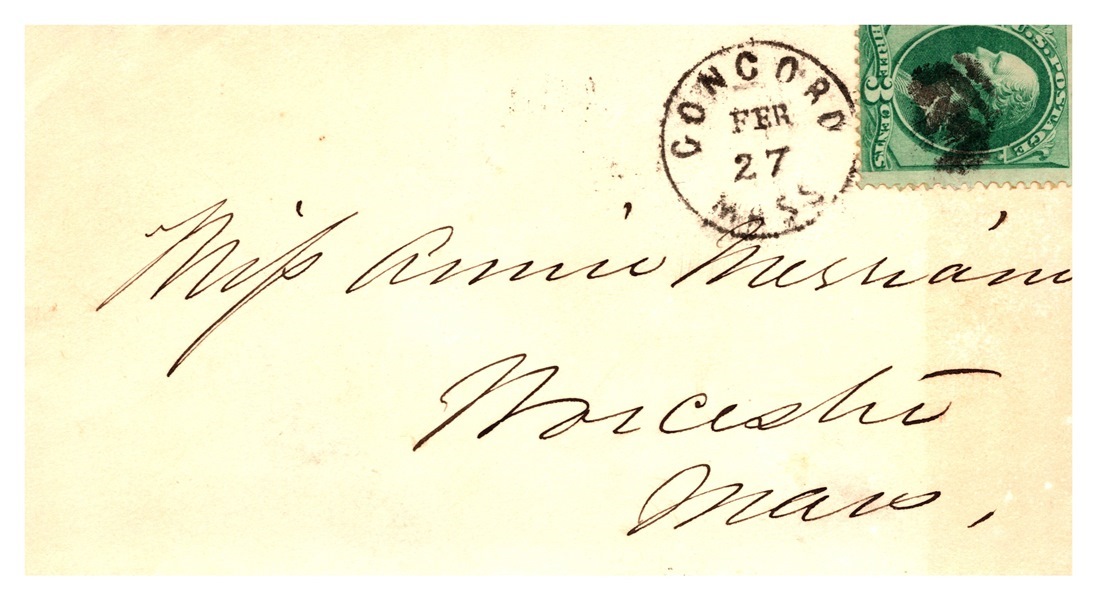 CONCORD
FEB
27
MASS
U.S. POSTAGE
THREE 3 CENTS
Miss Annie Merriam
Worcester
Mass,